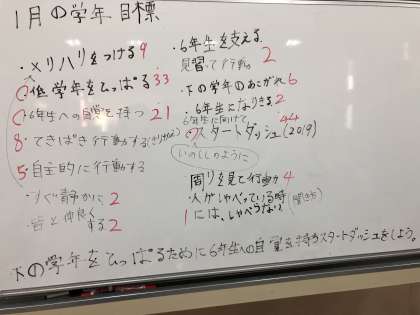 1月の学年目標
・メリハリをつける 9
低学年をひっぱる 33
6年生への自覚を持つ 21
8・てきぱき行動する(きりかえ)
5・自主的に行動する
・すぐ静かに 2
・皆と仲良くする 2
・6年生を支える
見習って行動 2
・下の学年のあこがれ 6
・6年生になりきる 2
6年生に向けて
スタートダッシュ(2019) 44
いのししのように
周りを見て行動 4
・人がしゃべっている時
1には、しゃべらない
下の学年をひっぱるために6年生への自覚を持ちスタートダッシュをしよう。